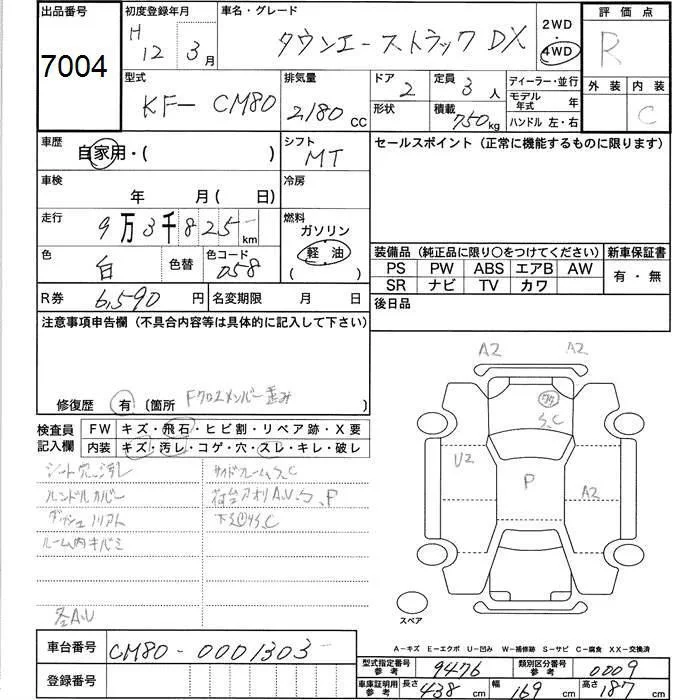 出品番号
7004
初度登録年月
H 12 3月
車名・グレード
タウンエーストラック DX
2WD
・
4WD
評価点
R
外装 内装
C
型式
KF-CM80
排気量
2180 CC
ドア
2
定員
3人
形状
積載
750kg
ディーラー・並行
モデル年式 年
ハンドル 左・右
車歴
自家用・( )
シフト
MT
セールスポイント (正常に機能するものに限ります)
車検
年 月( 日)
冷房
走行
9万3千825 km
燃料
ガソリン
軽油
( )
色
白
色替
色コード
058
装備品 (純正品に限り○をつけてください)
新車保証書
PS PW ABS エアB AW
SR ナビ TV カワ
有・無
R券 6,590円
名変期限 月 日
後日品
注意事項申告欄 (不具合内容等は具体的に記入して下さい)
修復歴 有 〔箇所 Fクロスメンバー歪み 〕
検査員記入欄
FW キズ・飛石・ヒビ割・リペア跡・X要
内装 キズ・汚レ・コゲ・穴・スレ・キレ・破レ
シート穴、汚レ
サイドフレームS、C
ハンドルカバー
荷台アオリA.U.S、P
ダッシュ
下廻りS.C
ルーム内キバミ
各A.U
A2 A2
S、C
U2
P
A2
スペア
A-キズ E-エクボ U-凹み W-補修跡 S-サビ C-腐食 XX-交換済
車台番号
CM80-0001303
登録番号
型式指定番号参考
9476
類別区分番号参考
0009
車庫証明用参考
長さ 438 cm
幅 169 cm
高さ 187 cm